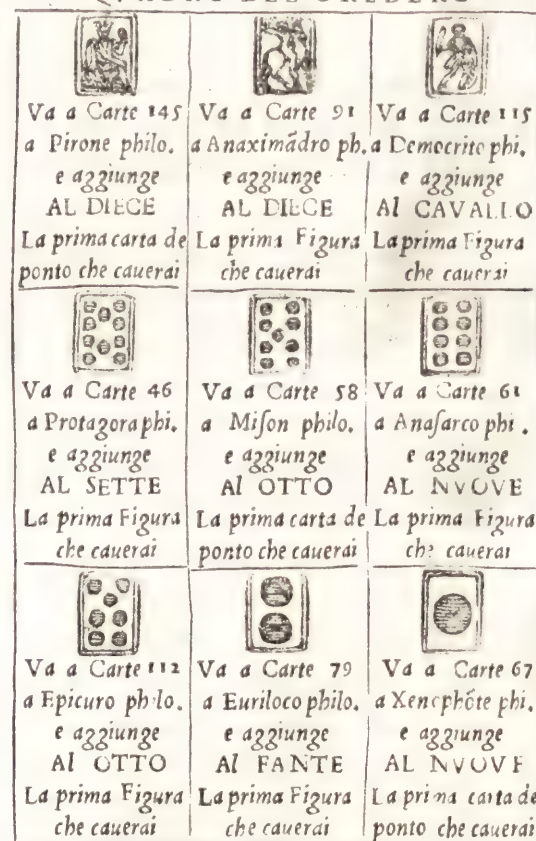 Va a Carte 145
a Pirone philo.
e aggiunge
AL DIECE
La prima carta de
ponto che cauerai
Va a Carte 91
a Anaximãdro ph.
e aggiunge
AL DIECE
La prima Figura
che cauerai
Va a Carte 115
a Democrito phi.
e aggiunge
Al CAVALLO
La prima Figura
che cauerai
Va a Carte 46
a Protagora phi.
e aggiunge
AL SETTE
La prima Figura
che cauerai
Va a Carte 58
a Miſon philo.
e aggiunge
Al OTTO
La prima carta de
ponto che cauerai
Va a Carte 61
a Anaſarco phi.
e aggiunge
AL NVOVE
La prima Figura
che cauerai
Va a Carte 112
a Epicuro philo.
e aggiunge
Al OTTO
La prima Figura
che cauerai
Va a Carte 79
a Euriloco philo.
e aggiunge
Al FANTE
La prima Figura
che cauerai
Va a Carte 67
a Xenophõte phi.
e aggiunge
AL NVOVE
La prima carta de
ponto che cauerai